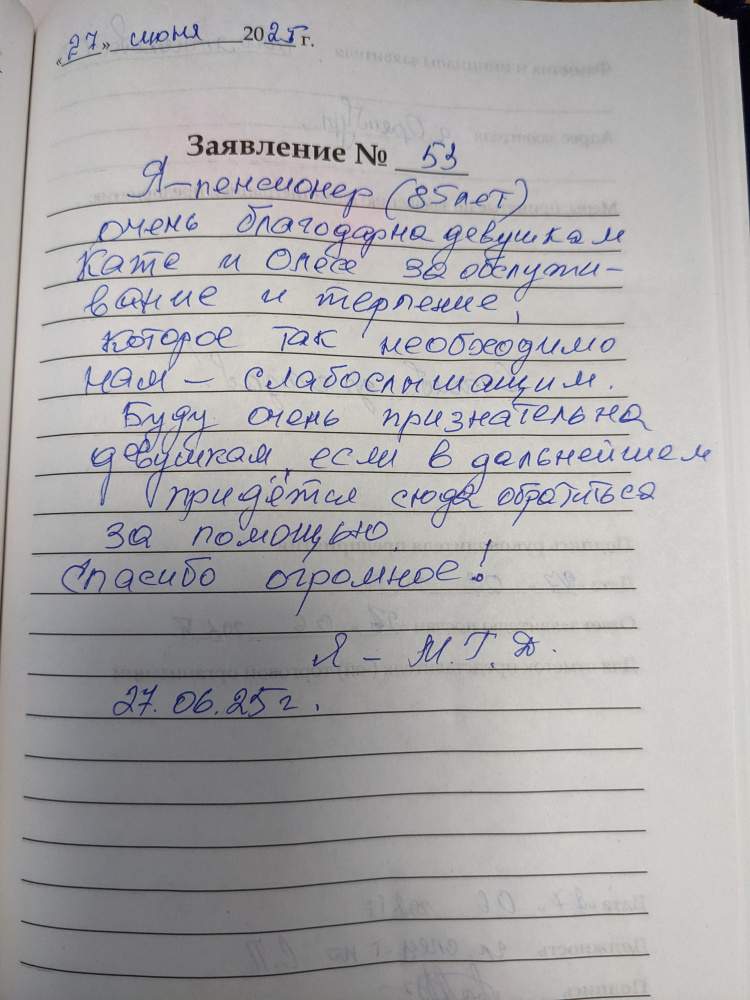 «27» июня 2025 г.
Заявление № 53
Я-пенсионер (85 лет)
очень благодарна девушкам
Кате и Олесе за обслужи-
вание и терпение,
которое так необходимо
нам - слабослышащим.
Буду очень признательна
девушкам, если в дальнейшем
придётся сюда обратиться
за помощью.
Спасибо огромное!
Я - М.Г.Д.
27.06.25г.